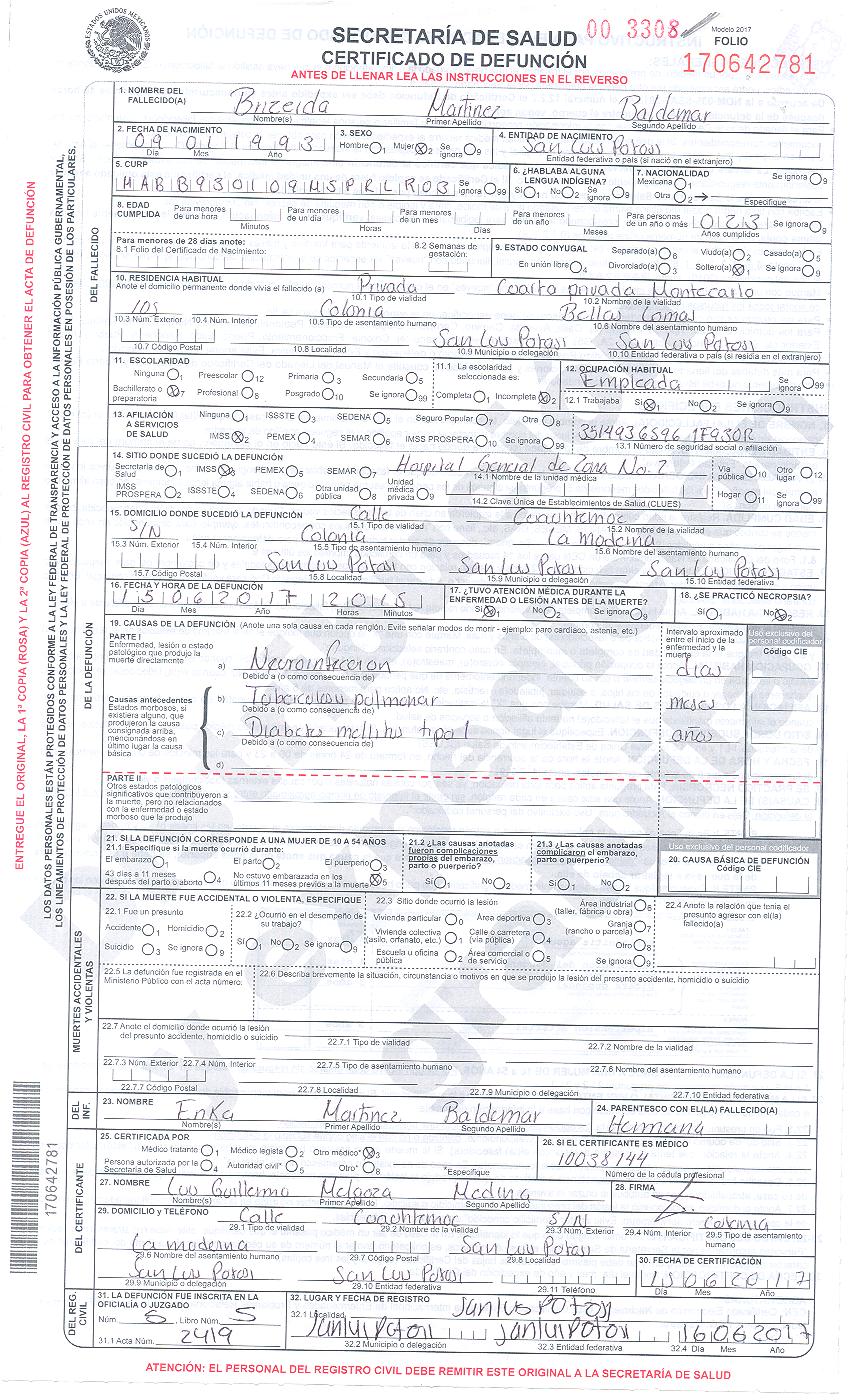 ESTADOS UNIDOS MEXICANOS
SECRETARÍA DE SALUD
CERTIFICADO DE DEFUNCIÓN
ANTES DE LLENAR LEA LAS INSTRUCCIONES EN EL REVERSO
00 3308
Modelo 2017
FOLIO
170642781
ENTREGUE EL ORIGINAL, LA 1ª COPIA (ROSA) Y LA 2ª COPIA (AZUL) AL REGISTRO CIVIL PARA OBTENER EL ACTA DE DEFUNCIÓN
LOS DATOS PERSONALES ESTÁN PROTEGIDOS CONFORME A LA LEY FEDERAL DE TRANSPARENCIA Y ACCESO A LA INFORMACIÓN PÚBLICA GUBERNAMENTAL,
LOS LINEAMIENTOS DE PROTECCIÓN DE DATOS PERSONALES Y LA LEY FEDERAL DE PROTECCIÓN DE DATOS PERSONALES EN POSESIÓN DE LOS PARTICULARES.
170642781
DEL FALLECIDO
1. NOMBRE DEL FALLECIDO(A) Brizeida Martinez Baldemar
Nombre(s) Primer Apellido Segundo Apellido
2. FECHA DE NACIMIENTO 09 01 1993 3. SEXO Hombre 1 Mujer 2 Se ignora 9 4. ENTIDAD DE NACIMIENTO San Luis Potosi
Día Mes Año Entidad federativa o país (si nació en el extranjero)
5. CURP Se ignora 99 6. ¿HABLABA ALGUNA LENGUA INDÍGENA? Sí 1 No 2 Se ignora 9 7. NACIONALIDAD Mexicana 1 Otra 2 Se ignora 9
Especifique
8. EDAD CUMPLIDA Para menores de una hora Para menores de un día Para menores de un mes Para menores de un año Para personas de un año o más 023 Se ignora 9
Minutos Horas Días Meses Años cumplidos
Para menores de 28 días anote:
8.1 Folio del Certificado de Nacimiento: 8.2 Semanas de gestación:
9. ESTADO CONYUGAL Separado(a) 6 Viudo(a) 2 Casado(a) 5
En unión libre 4 Divorciado(a) 3 Soltero(a) 1 Se ignora 9
10. RESIDENCIA HABITUAL Privada Cuarta privada Montecarlo
Anote el domicilio permanente donde vivía el fallecido (a) 10.1 Tipo de vialidad 10.2 Nombre de la vialidad
105 Colonia Bellas Lomas
10.3 Núm. Exterior 10.4 Núm. Interior 10.5 Tipo de asentamiento humano 10.6 Nombre del asentamiento humano
San Luis Potosi San Luis Potosi
10.7 Código Postal 10.8 Localidad 10.9 Municipio o delegación 10.10 Entidad federativa o país (si residía en el extranjero)
11. ESCOLARIDAD
Ninguna 1 Preescolar 12 Primaria 3 Secundaria 5
Bachillerato o preparatoria 7 Profesional 8 Posgrado 10 Se ignora 99
11.1 La escolaridad seleccionada es:
Completa 1 Incompleta 2
12. OCUPACIÓN HABITUAL
Empleada Se ignora 99
12.1 Trabajaba Sí 1 No 2 Se ignora 9
13. AFILIACIÓN A SERVICIOS DE SALUD Ninguna 1 ISSSTE 3 SEDENA 5 Seguro Popular 7 Otra 8
IMSS 2 PEMEX 4 SEMAR 6 IMSS PROSPERA 10 Se ignora 99
3514936596 1F930R
13.1 Número de seguridad social o afiliación
DE LA DEFUNCIÓN
14. SITIO DONDE SUCEDIÓ LA DEFUNCIÓN
Secretaría de Salud 1 IMSS 3 PEMEX 5 SEMAR 7 Hospital General de Zona No. 2 Vía pública 10 Otro lugar 12
14.1 Nombre de la unidad médica
IMSS PROSPERA 2 ISSSTE 4 SEDENA 6 Otra unidad pública 8 Unidad médica privada 9 Hogar 11 Se ignora 99
14.2 Clave Única de Establecimientos de Salud (CLUES)
15. DOMICILIO DONDE SUCEDIÓ LA DEFUNCIÓN Calle Cuauhtemoc
15.1 Tipo de vialidad 15.2 Nombre de la vialidad
S/N Colonia La moderna
15.3 Núm. Exterior 15.4 Núm. Interior 15.5 Tipo de asentamiento humano 15.6 Nombre del asentamiento humano
San Luis Potosi San Luis Potosi San Luis Potosi
15.7 Código Postal 15.8 Localidad 15.9 Municipio o delegación 15.10 Entidad federativa
16. FECHA Y HORA DE LA DEFUNCIÓN 15 06 2017 20 15
Día Mes Año Horas Minutos
17. ¿TUVO ATENCIÓN MÉDICA DURANTE LA ENFERMEDAD O LESIÓN ANTES DE LA MUERTE? Sí 1 No 2
18. ¿SE PRACTICÓ NECROPSIA? Sí 1 No 2
19. CAUSAS DE LA DEFUNCIÓN (Anote una sola causa en cada renglón. Evite señalar modos de morir - ejemplo: paro cardíaco, astenia, etc.)
Intervalo aproximado entre el inicio de la enfermedad y la muerte
Uso exclusivo del personal codificador
Código CIE
PARTE I
Enfermedad, lesión o estado patológico que produjo la muerte directamente
a) Neuroinfeccion días
Debido a (o como consecuencia de)
Causas antecedentes
Estados morbosos, si existiera alguno, que produjeron la causa consignada arriba, mencionándose en último lugar la causa básica
b) Tuberculosis pulmonar meses
Debido a (o como consecuencia de)
c) Diabetes mellitus tipo 1 años
Debido a (o como consecuencia de)
d)
PARTE II
Otros estados patológicos significativos que contribuyeron a la muerte, pero no relacionados con la enfermedad o estado morboso que la produjo
21. SI LA DEFUNCIÓN CORRESPONDE A UNA MUJER DE 10 A 54 AÑOS
21.1 Especifique si la muerte ocurrió durante:
El embarazo 1 El parto 2 El puerperio 3
43 días a 11 meses después del parto o aborto 4 No estuvo embarazada en los últimos 11 meses previos a la muerte 5
21.2 ¿Las causas anotadas fueron complicaciones propias del embarazo, parto o puerperio?
Sí 1 No 2
21.3 ¿Las causas anotadas complicaron el embarazo, parto o puerperio?
Sí 1 No 2
Uso exclusivo del personal codificador
20. CAUSA BÁSICA DE DEFUNCIÓN
Código CIE
MUERTES ACCIDENTALES Y VIOLENTAS
22. SI LA MUERTE FUE ACCIDENTAL O VIOLENTA, ESPECIFIQUE
22.1 Fue un presunto
Accidente 1 Homicidio 2
Suicidio 3 Se ignora 9
22.2 ¿Ocurrió en el desempeño de su trabajo?
Sí 1 No 2 Se ignora 9
22.3 Sitio donde ocurrió la lesión
Vivienda particular 0 Área deportiva 3 Área industrial (taller, fábrica u obra) 6
Vivienda colectiva (asilo, orfanato, etc.) 1 Calle o carretera (vía pública) 4 Granja (rancho o parcela) 7
Escuela u oficina pública 2 Área comercial o de servicio 5 Otro 8
Se ignora 9
22.4 Anote la relación que tenía el presunto agresor con el(la) fallecido(a)
22.5 La defunción fue registrada en el Ministerio Público con el acta número:
22.6 Describa brevemente la situación, circunstancia o motivos en que se produjo la lesión del presunto accidente, homicidio o suicidio
22.7 Anote el domicilio donde ocurrió la lesión del presunto accidente, homicidio o suicidio
22.7.1 Tipo de vialidad 22.7.2 Nombre de la vialidad
22.7.3 Núm. Exterior 22.7.4 Núm. Interior 22.7.5 Tipo de asentamiento humano 22.7.6 Nombre del asentamiento humano
22.7.7 Código Postal 22.7.8 Localidad 22.7.9 Municipio o delegación 22.7.10 Entidad federativa
DEL INF.
23. NOMBRE Erika Martinez Baldemar
Nombre(s) Primer Apellido Segundo Apellido
24. PARENTESCO CON EL(LA) FALLECIDO(A)
Hermana
DEL CERTIFICANTE
25. CERTIFICADA POR
Médico tratante 1 Médico legista 2 Otro médico* 3
Persona autorizada por la Secretaría de Salud 4 Autoridad civil* 5 Otro* 8
*Especifique
26. SI EL CERTIFICANTE ES MÉDICO
10038144
Número de la cédula profesional
27. NOMBRE Luis Guillermo Melgoza Medina
Nombre(s) Primer Apellido Segundo Apellido
28. FIRMA
29. DOMICILIO y TELÉFONO Calle Cuauhtemoc S/N Colonia
29.1 Tipo de vialidad 29.2 Nombre de la vialidad 29.3 Núm. Exterior 29.4 Núm. Interior 29.5 Tipo de asentamiento humano
La moderna San Luis Potosi
29.6 Nombre del asentamiento humano 29.7 Código Postal 29.8 Localidad
San Luis Potosi San Luis Potosi
29.9 Municipio o delegación 29.10 Entidad federativa 29.11 Teléfono
30. FECHA DE CERTIFICACIÓN
15 06 2017
Día Mes Año
DEL REG. CIVIL
31. LA DEFUNCIÓN FUE INSCRITA EN LA OFICIALÍA O JUZGADO
Núm. 6, Libro Núm. 5
31.1 Acta Núm. 2419
32. LUGAR Y FECHA DE REGISTRO
32.1 Localidad San Luis Potosi
San Luis Potosi San Luis Potosi 16 06 2017
32.2 Municipio o delegación 32.3 Entidad federativa 32.4 Día Mes Año
ATENCIÓN: EL PERSONAL DEL REGISTRO CIVIL DEBE REMITIR ESTE ORIGINAL A LA SECRETARÍA DE SALUD